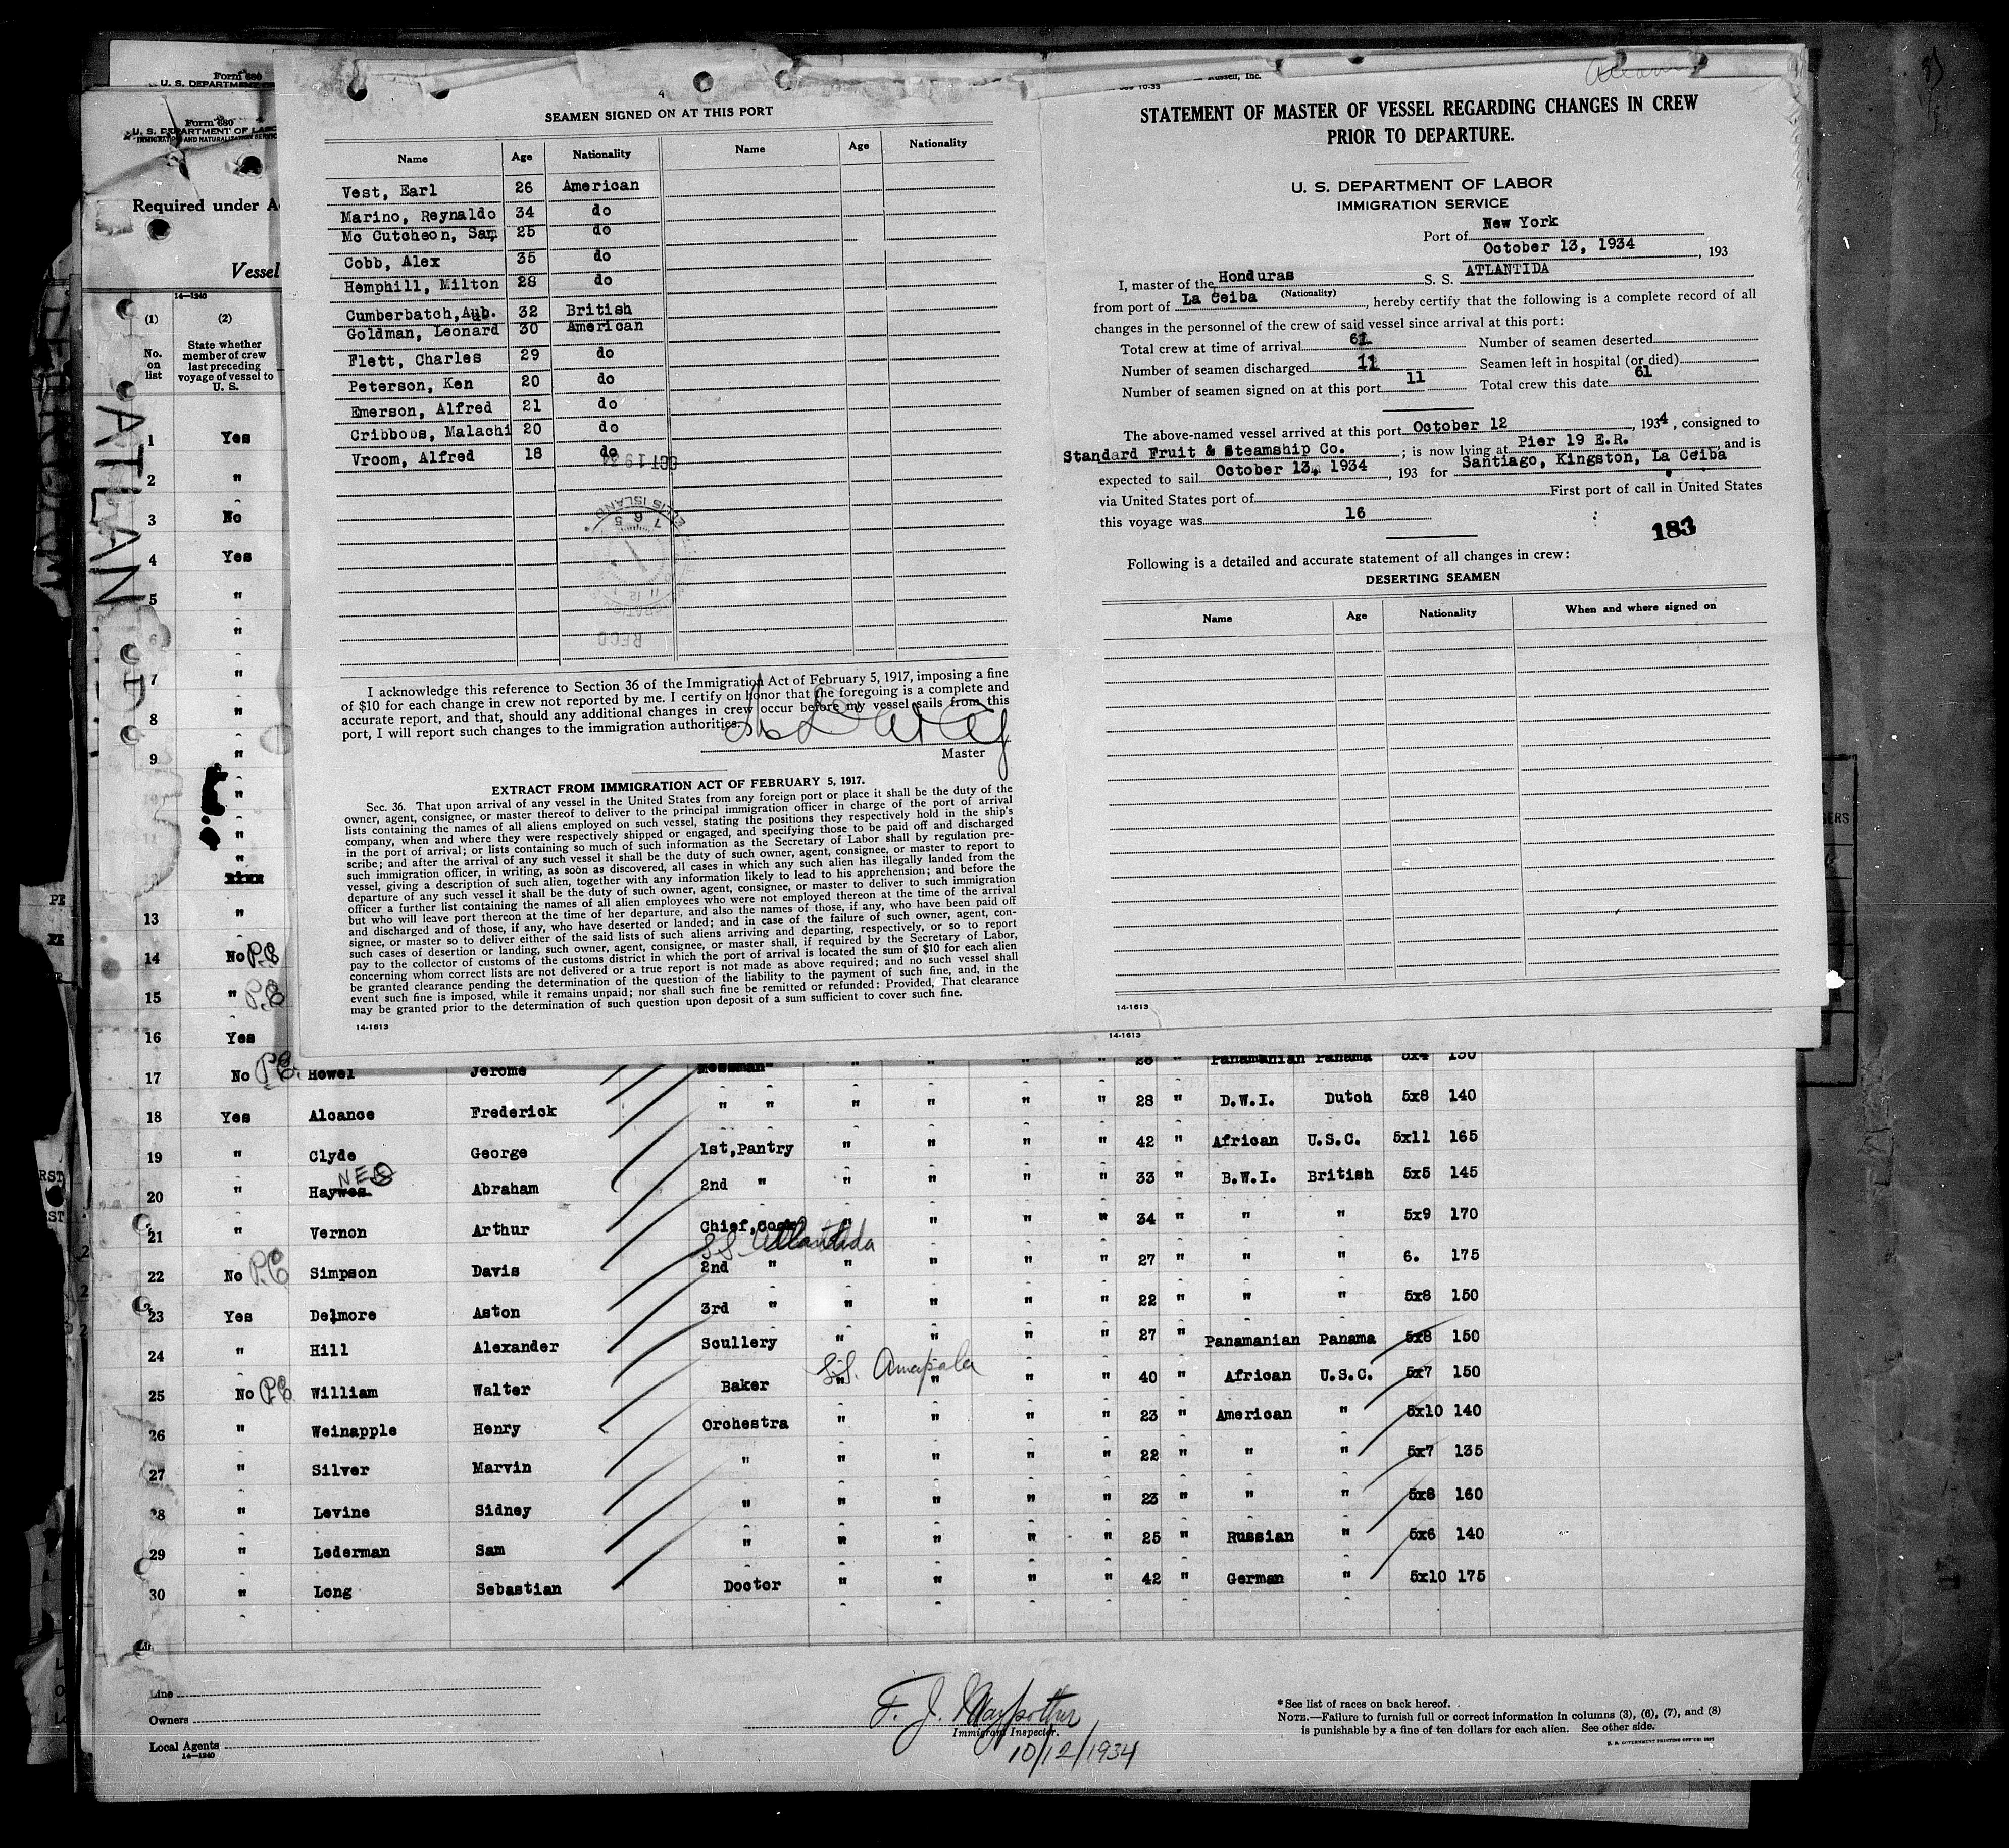 Form 680
U. S. DEPARTMENT
Form 680
U. S. DEPARTMENT OF LABO
IMMIGRATION AND NATURALIZATION SERVICE
Required under A
Vessel
14—1240
(1) (2)
No. on list
State whether member of crew last preceding voyage of vessel to U. S.
ATLAN
D
1 Yes
2 "
3 No
4 Yes
5 "
6 "
7 "
8 "
9 "
"
"
"
13 "
14 No P.E
15 " P.E
16 Yes
4
SEAMEN SIGNED ON AT THIS PORT
Name Age Nationality Name Age Nationality
Vest, Earl 26 American
Marino, Reynaldo 34 do
Mc Cutcheon, Sam 25 do
Cobb, Alex 35 do
Hemphill, Milton 28 do
Cumberbatch, Aub. 32 British
Goldman, Leonard 30 American
Flett, Charles 29 do
Peterson, Ken 20 do
Emerson, Alfred 21 do
Cribbobs, Malachi 20 do
Vroom, Alfred 18 do
OCT 19 34
ELLIS ISLAND
RECD
I acknowledge this reference to Section 36 of the Immigration Act of February 5, 1917, imposing a fine
of $10 for each change in crew not reported by me. I certify on honor that the foregoing is a complete and
accurate report, and that, should any additional changes in crew occur before my vessel sails from this
port, I will report such changes to the immigration authorities.
Master
EXTRACT FROM IMMIGRATION ACT OF FEBRUARY 5, 1917.
Sec. 36. That upon arrival of any vessel in the United States from any foreign port or place it shall be the duty of the
owner, agent, consignee, or master thereof to deliver to the principal immigration officer in charge of the port of arrival
lists containing the names of all aliens employed on such vessel, stating the positions they respectively hold in the ship's
company, when and where they were respectively shipped or engaged, and specifying those to be paid off and discharged
in the port of arrival; or lists containing so much of such information as the Secretary of Labor shall by regulation pre-
scribe; and after the arrival of any such vessel it shall be the duty of such owner, agent, consignee, or master to report to
such immigration officer, in writing, as soon as discovered, all cases in which any such alien has illegally landed from the
vessel, giving a description of such alien, together with any information likely to lead to his apprehension; and before the
departure of any such vessel it shall be the duty of such owner, agent, consignee, or master to deliver to such immigration
officer a further list containing the names of all alien employees who were not employed thereon at the time of the arrival
but who will leave port thereon at the time of her departure, and also the names of those, if any, who have been paid off
and discharged and of those, if any, who have deserted or landed; and in case of the failure of such owner, agent, con-
signee, or master so to deliver either of the said lists of such aliens arriving and departing, respectively, or so to report
such cases of desertion or landing, such owner, agent, consignee, or master shall, if required by the Secretary of Labor,
pay to the collector of customs of the customs district in which the port of arrival is located the sum of $10 for each alien
concerning whom correct lists are not delivered or a true report is not made as above required; and no such vessel shall
be granted clearance pending the determination of the question of the liability to the payment of such fine, and, in the
event such fine is imposed, while it remains unpaid; nor shall such fine be remitted or refunded: Provided, That clearance
may be granted prior to the determination of such question upon deposit of a sum sufficient to cover such fine.
14-1613
Russell, Inc.
10-33
STATEMENT OF MASTER OF VESSEL REGARDING CHANGES IN CREW
PRIOR TO DEPARTURE.
U. S. DEPARTMENT OF LABOR
IMMIGRATION SERVICE
Port of New York
October 13, 1934, 193
I, master of the Honduras S. S. ATLANTIDA
(Nationality)
from port of La Ceiba, hereby certify that the following is a complete record of all
changes in the personnel of the crew of said vessel since arrival at this port:
Total crew at time of arrival 61 Number of seamen deserted
Number of seamen discharged 11 Seamen left in hospital (or died)
Number of seamen signed on at this port 11 Total crew this date 61
The above-named vessel arrived at this port October 12, 1934, consigned to
Standard Fruit & Steamship Co.; is now lying at Pier 19 E.R., and is
expected to sail October 13, 1934, 193 for Santiago, Kingston, La Ceiba
via United States port of First port of call in United States
this voyage was 16
183
Following is a detailed and accurate statement of all changes in crew:
DESERTING SEAMEN
Name Age Nationality When and where signed on
14-1613
14-1613
17 No P.E. Howel Jerome Messman " " " " 28 " Panamanian Panama 5x4 130
18 Yes Alcance Frederick " " " " " " 28 " D.W.I. Dutch 5x8 140
19 " Clyde George 1st,Pantry " " " " 42 " African U.S.C. 5x11 165
NES
20 " Haywes Abraham 2nd " " " " " 33 " B.W.I. British 5x5 145
21 " Vernon Arthur Chief,Cook " " " " 34 " " " 5x9 170
S.S. Atlantida
22 No P.E Simpson Davis 2nd " " " " " 27 " " " 6. 175
23 Yes Delmore Aston 3rd " " " " " 22 " " " 5x8 150
24 " Hill Alexander Scullery " " " " 27 " Panamanian Panama 5x8 150
S.S. Amapala
25 No P.E William Walter Baker " " " " 40 " African U.S.C. 5x7 150
26 " Weinapple Henry Orchestra " " " " 23 " American " 5x10 140
27 " Silver Marvin " " " " " 22 " " " 5x7 135
28 " Levine Sidney " " " " " 23 " " " 5x8 160
29 " Lederman Sam " " " " " 25 " Russian " 5x6 140
30 " Long Sebastian Doctor " " " " 42 " German " 5x10 175
Line
Owners
Local Agents
14—1240
F. J. Maypother
Immigrant Inspector.
10/12/1934
*See list of races on back hereof.
NOTE.—Failure to furnish full or correct information in columns (3), (6), (7), and (8)
is punishable by a fine of ten dollars for each alien. See other side.
U. S. GOVERNMENT PRINTING OFFICE: 1932